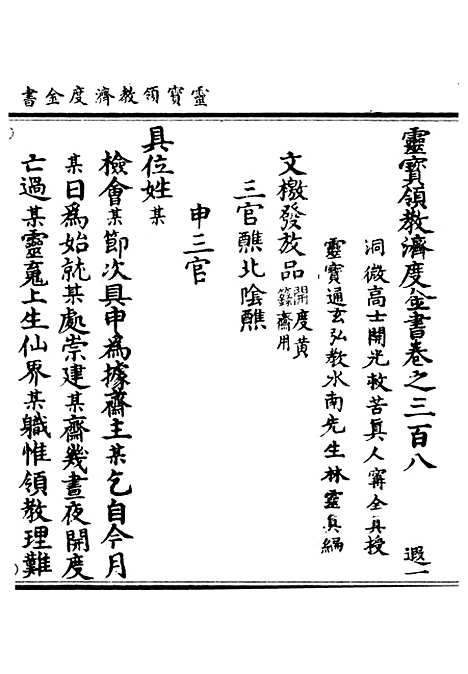 靈寶領教濟度金書
靈寶領教濟度金書卷之三百八 遐一
洞微高士開光救苦真人甯全真授
靈寶通玄弘教水南先生林靈真編
文檄發放品 開度黃籙齋用
三官醮北陰醮
申三官
具位姓某
檢會某節次具申為據齋主某乞自今月
某日為始就某處崇建某齋幾晝夜開度
亡過某靈䰟上生仙界某職惟領教理難